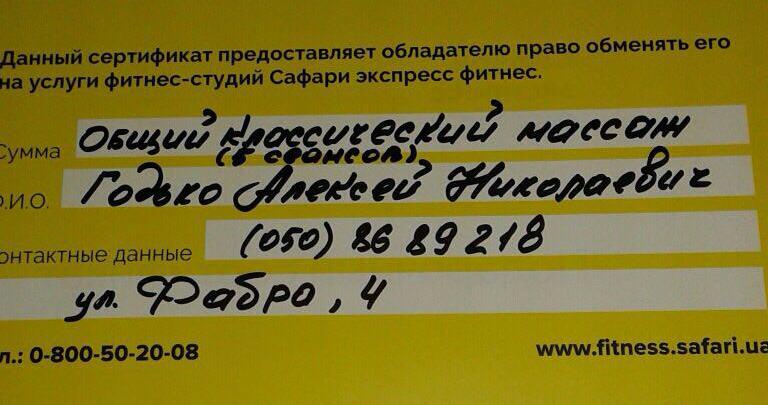 Данный сертификат предоставляет обладателю право обменять его
на услуги фитнес-студий Сафари экспресс фитнес.
Сумма Общий классический массаж
Ф.И.О. Годько Алексей Николаевич
контактные данные (050) 86 89 218
ул. Фабра, 4
л.: 0-800-50-20-08
www.fitness.safari.ua